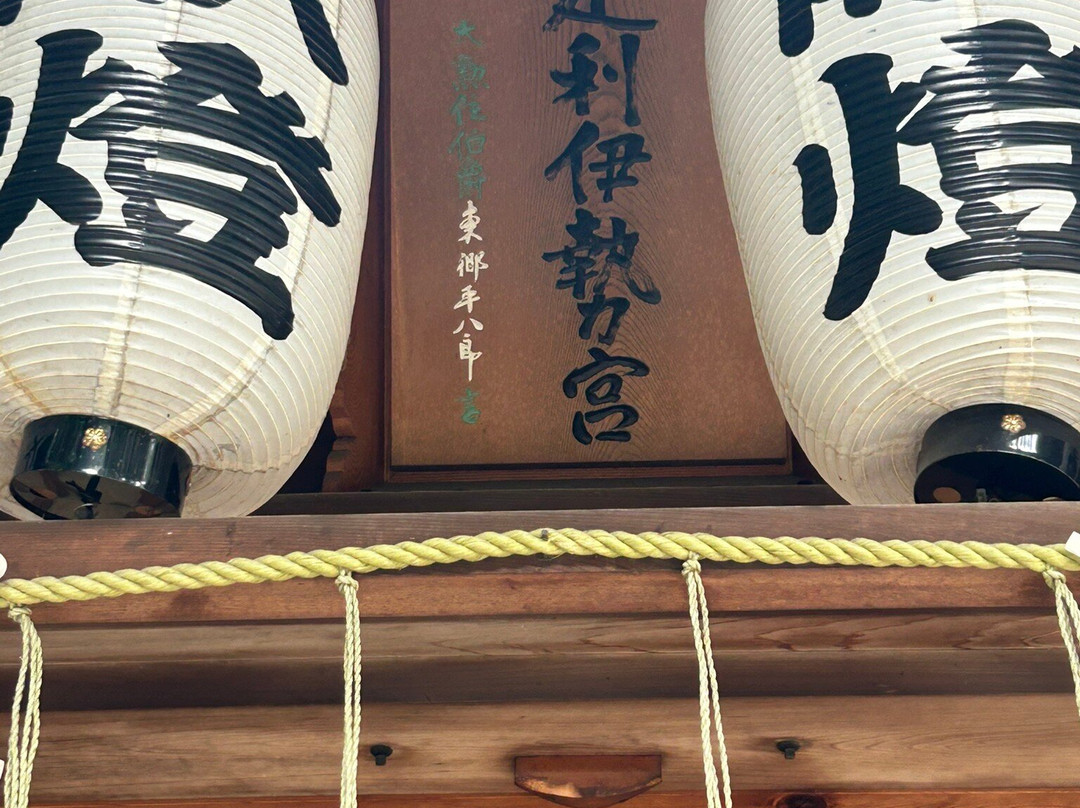 燈
足利伊勢宮
大勲位伯爵東郷平八郎書
燈